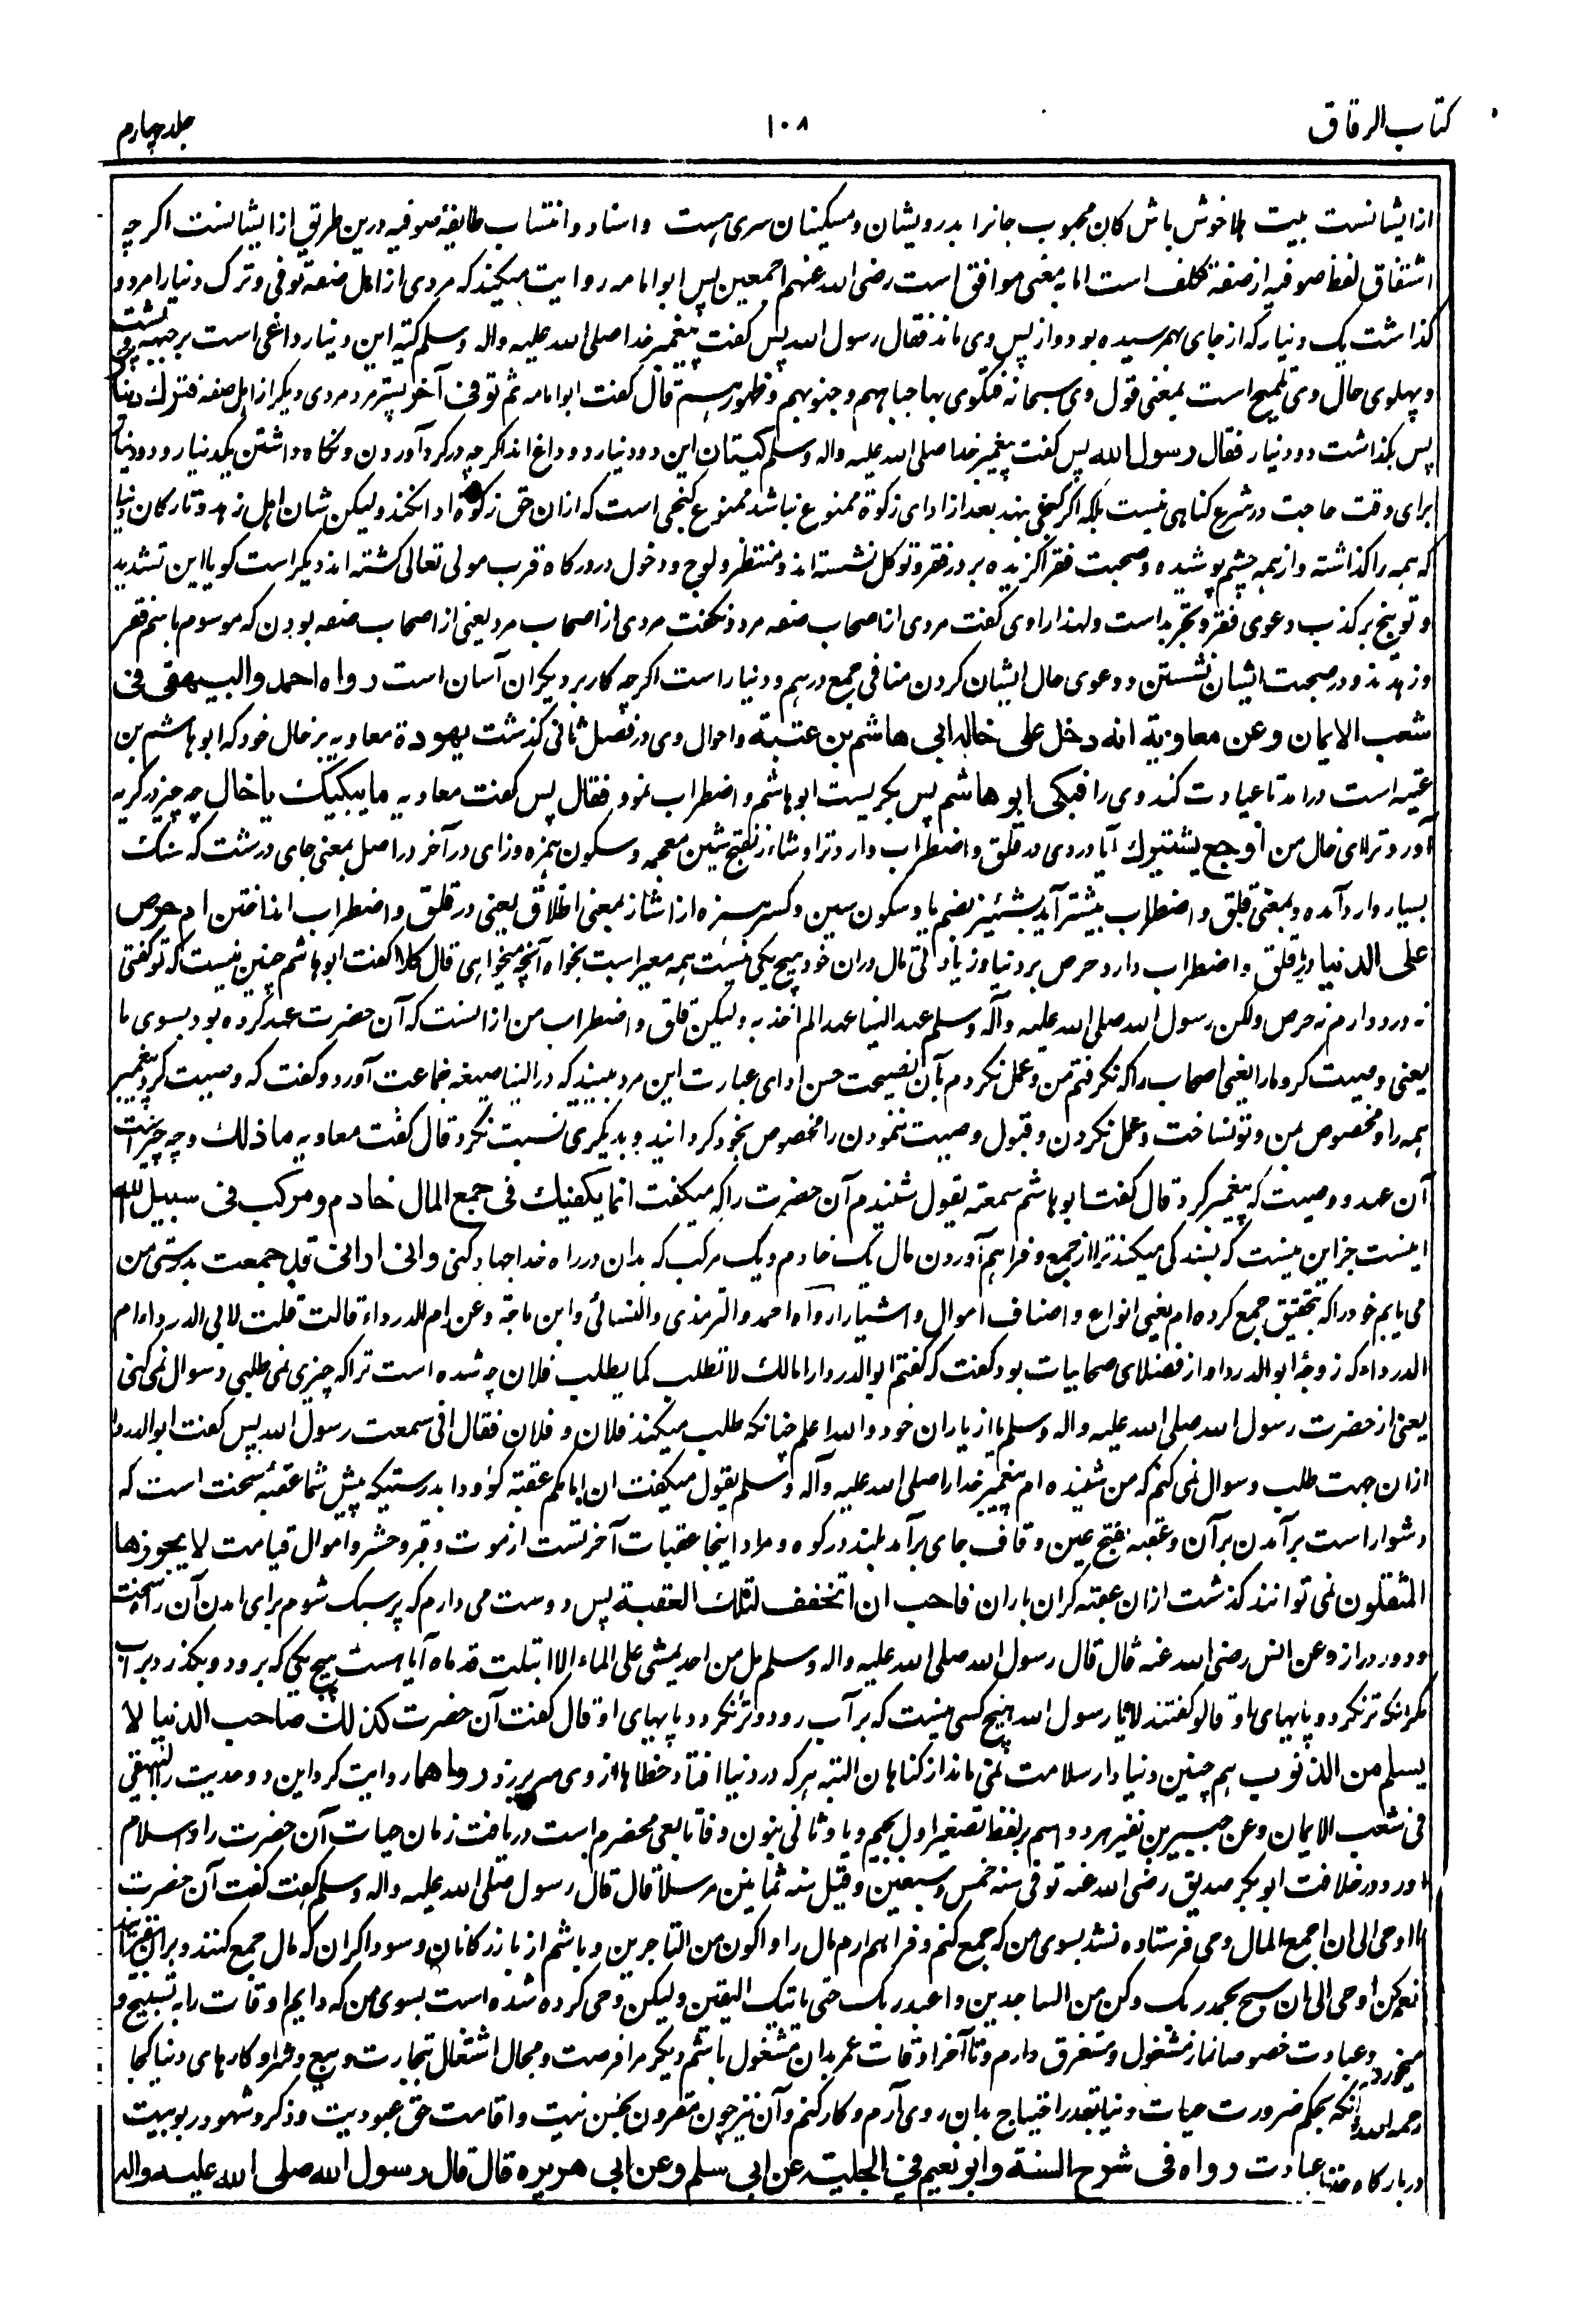 کتاب الرقاق
۱۰۸
جلد چهارم
ازایشانست بیت دلا خوش باش کان محبوب جانرا بدرویشان ومسکینان سری هست واسناد وانتساب طایفهٔ صوفیه درین طریق ازایشانست اکرچه
اشتقاق لفظ صوفیه از صفه تکلف است اما به معنی موافق است رضی الله عنهم اجمعین پس ابوامامه روایت میکند که مردی از اهل صفه توفی وترک دنیارا مرد و
کذاشت یک دنیار که از جای بهمرسیده بود واز پس وی ماند فقال رسول الله پس کفت پیغمبر خدا صلی الله علیه واله وسلم کیة این دینار داغی است بر جبهه وپشت
وپهلوی حال وی تلمیح است بمعنی قول وی سبحانه فتکوی بها جباههم وجنوبهم وظهورهم قال کفت ابوامامه ثم توفی آخر پستر مرد مردی دیکر از اهل صفه فترك دینارین
پس بکذاشت دو دنیار فقال رسول الله پس کفت پیغمبر خدا صلی الله علیه واله وسلم کیتان این دو دنیار دو داغ اند اکرچه در کرد آوردن ونکاه داشتن یکدنیار ودو دنیار
برای وقت حاجت در شرع کناهی نیست بلکه اکر کنجی نهند بعد از ادای زکوة ممنوع نباشد ممنوع کنجی است که ازان حق زکوة ادا نکنند ولیکن شان اهل زهد وتارکان دنیا
که همه را کذاشته واز همه چشم پوشیده وصحبت فقر اکزیده بر در فقر وتوکل نشسته اند ومنتظر ولوج ودخول در درکاه قرب مولی تعالی کشته اند دیکر است کویا این تشدید
وتوبیخ بر کذب دعوی فقر وتجرید است ولهذا راوی کفت مردی از اصحاب صفه مرد ونکفت مردی از اصحاب مرد یعنی از اصحاب صفه بودن که موسوم باسم فقر
وزهدند ودر صحبت ایشان نشستن ودعوی حال ایشان کردن منافی جمع درهم ودنیار است اکرچه کار بر دیکران آسان است رواه احمد والبیهقی فی
شعب الایمان وعن معاویة انه دخل علی خاله ابی هاشم بن عتبة واحوال وی در فصل ثانی کذشت یعوده معاویه بر خال خود که ابوهاشم بن
عتبه است درامد تا عیادت کند وی را فبکی ابو هاشم پس بکریست ابوهاشم واضطراب نمود فقال پس کفت معاویه ما یبکیك یا خال چه چیز در کریه
آورد ترا ای خال من اوجع یشئزك آیا دردی در قلق واضطراب دارد ترا وشاءز بفتح شین معجمه وسکون همزه وزای در آخر در اصل بمعنی جای درشت که سنك
بسیار دارد آمده وبمعنی قلق واضطراب بیشتر آید یشئیز بضم یا وسکون سین وکسر همزه از اشاز بمعنی اقلاق یعنی در قلق واضطراب انداختن ام حرص
علی الدنیا در قلق واضطراب دارد حرص بر دنیا وزیادتی مال دران خود هیچ یکی نیست همه میسر است بخواه آنچه میخواهی قال کلا کفت ابوهاشم چنین نیست که تو کفتی
نه درد دارم نه حرص ولکن رسول الله صلی الله علیه وآله وسلم عهد الینا عهدا لم آخذ به ولیکن قلق واضطراب من ازانست که آن حضرت عهد کرده بود بسوی ما
یعنی وصیت کرد مارا یعنی اصحاب را که نکرفتم من وعمل نکردم بآن نصیحت حسن ادای عبارت این مرد ببیند که در الینا صیغه جماعت آورد وکفت که وصیت کرد پیغمبر
همه را ومخصوص بمن وتو نساخت وعمل نکردن وقبول وصیت ننمودن را مخصوص بخود کردانید وبدیکری نسبت نکرد قال کفت معاویه ما ذلك وچه چیز است
آن عهد ووصیت که پیغمبر کرد قال کفت ابوهاشم سمعته یقول شنیدم آن حضرت را که میکفت انما یکفیك فی جمع المال خادم ومرکب فی سبیل الله
اینست جز این نیست که بسندکی میکند ترا از جمع وفراهم آوردن مال یک خادم ویک مرکب که بدان در راه خدا جهاد کنی وانی ارانی قد جمعت بدرستی من
می یابم خود را که بتحقیق جمع کرده ام یعنی انواع واصناف اموال واشیارا رواه احمد والترمذی والنسائی وابن ماجة وعن ام الدرداء قالت قلت لابی الدرداء ام
الدرداء که زوجهٔ ابوالدرداء واز فضلای صحابیات بود کفت که کفتم ابوالدردارا مالك لا تطلب کما یطلب فلان چه شده است ترا که چیزی نمی طلبی وسوال نمی کنی
یعنی از حضرت رسول الله صلی الله علیه واله وسلم یا از یاران خود والله اعلم چنانکه طلب میکنند فلان وفلان فقال انی سمعت رسول الله پس کفت ابوالدردا
ازان جهت طلب وسوال نمی کنم که من شنیده ام پیغمبر خدا را صلی الله علیه وآله وسلم یقول میکفت ان امامکم عقبة کؤودا بدرستیکه پیش شما عقبهٔ سخت است که
دشوار است برآمدن بر آن وعقبه بفتح عین وقاف جای برآمد بلند در کوه ومراد اینجا عقبات آخرتست از موت وقبر وحشر واهوال قیامت لا یجوزها
المثقلون نمی توانند کذشت ازان عقبه کران باران فاحب ان اتخفف لتلك العقبة پس دوست می دارم که پر سبک شوم برای امدن آن راه سخت
ودور دراز وعن انس رضی الله عنه قال قال رسول الله صلی الله علیه واله وسلم هل من احد یمشی علی الماء الا ابتلت قدماه آیا هست هیچ یکی که برود وبکذرد بر آب
مکر انکه تر نکردد پایهای او قالوا کفتند لا یا رسول الله هیچ کسی نیست که بر آب رود وتر نکردد پایهای او قال کفت آن حضرت کذلك صاحب الدنیا لا
یسلم من الذنوب هم چنین دنیا دار سلامت نمی ماند از کناهان البته هر که در دنیا افتاد خطاها از وی سر برزد رواهما روایت کرد این دو حدیث را البیهقی
فی شعب الایمان وعن جبیر بن نفیر هر دو اسم بر لفظ تصغیر اول بجیم وبا وثانی بنون وفا تابعی مخضرم است دریافت زمان حیات آن حضرت را واسلام
اورد در خلافت ابوبکر صدیق رضی الله عنه توفی سنه خمس وسبعین وقیل سنه ثمانین مرسلا قال قال رسول صلی الله علیه واله وسلم کفت کفت آن حضرت
ما اوحی الی ان اجمع المال وحی فرستاده نشد بسوی من که جمع کنم وفراهم ارم مال را واکون من التاجرین وباشم از بازرکانان وسوداکران که مال جمع کنند وبران بیفزایند
ولکن اوحی الی ان سبح بحمد ربک وکن من الساجدین واعبد ربک حتی یاتیک الیقین ولیکن وحی کرده شده است بسوی من که دایم اوقات را به تسبیح و
وعبادت خصوصا نماز مشغول ومستغرق دارم وتا آخر اوقات عمر بدان مشغول باشم دیکر مرا فرصت ومجال اشتغال بتجارت وبیع وشرا وکارهای دنیا کجا
انکه بحکم ضرورت حیات دنیا بقدر احتیاج بدان روی آرم وکار کنم وآن نیز چون مقرون بحسن نیت واقامت حق عبودیت وذکر وشهود ربوبیت
دربارکاه عبادت رواه فی شرح السنة وابو نعیم فی الحلیة عن ابی مسلم وعن ابی هریره قال قال رسول الله صلی الله علیه واله